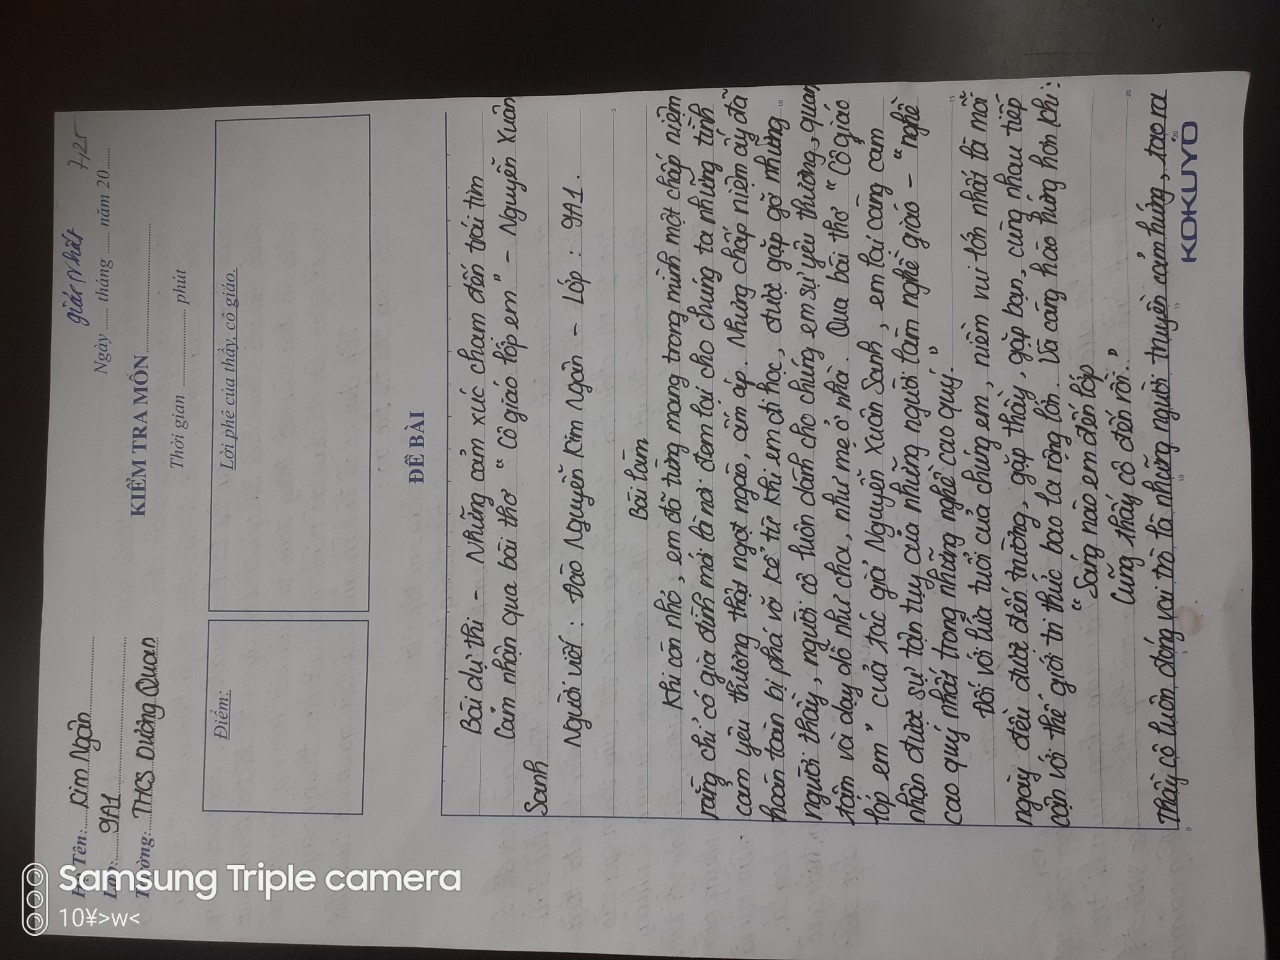 giải Nhất 7,25
Họ Tên: Kim Ngân
Ngày ...... tháng ...... năm 20......
Lớp: 9A1
KIỂM TRA MÔN
Trường: THCS Dương Quan
Thời gian ............ phút
Điểm:
Lời phê của thầy, cô giáo.
ĐỀ BÀI
Bài dự thi - Những cảm xúc chạm đến trái tim
Cảm nhận qua bài thơ "Cô giáo lớp em" - Nguyễn Xuân
Sanh
Người viết : Đào Nguyễn Kim Ngân - Lớp : 9A1.
Bài làm
Khi còn nhỏ, em đã từng mang trong mình một chấp niệm
rằng chỉ có gia đình mới là nơi đem lại cho chúng ta những tình
cảm yêu thương thật ngọt ngào, ấm áp. Nhưng chấp niệm ấy đã
hoàn toàn bị phá vỡ kể từ khi em đi học, được gặp gỡ những
người thầy, người cô luôn dành cho chúng em sự yêu thương, quan
tâm và dạy dỗ như cha, như mẹ ở nhà. Qua bài thơ "Cô giáo
lớp em" của tác giả Nguyễn Xuân Sanh, em lại càng cảm
nhận được sự tận tụy của những người làm nghề giáo - "nghề
cao quý nhất trong những nghề cao quý."
Đối với lứa tuổi của chúng em, niềm vui lớn nhất là mỗi
ngày đều được đến trường, gặp thầy, gặp bạn, cùng nhau tiếp
cận với thế giới tri thức bao la rộng lớn. Và càng hào hứng hơn khi:
"Sáng nào em đến lớp
Cũng thấy cô đến rồi."
Thầy cô luôn đóng vai trò là những người truyền cảm hứng, tạo ra
KOKUYO
Samsung Triple camera
10¥>w<